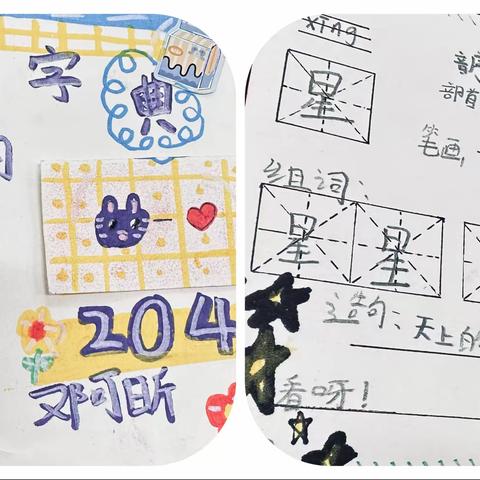 字典
204
邓阿昕
xīng
星
部首
笔画
组词：
星星
造句：天上的
看呀！